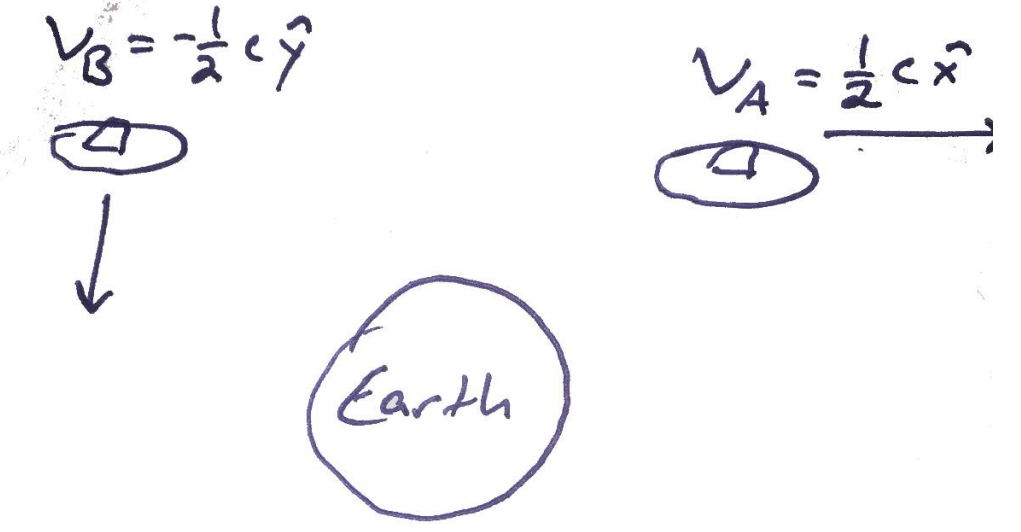 V_B = -1/2 c ŷ
V_A = 1/2 c x̂
Earth